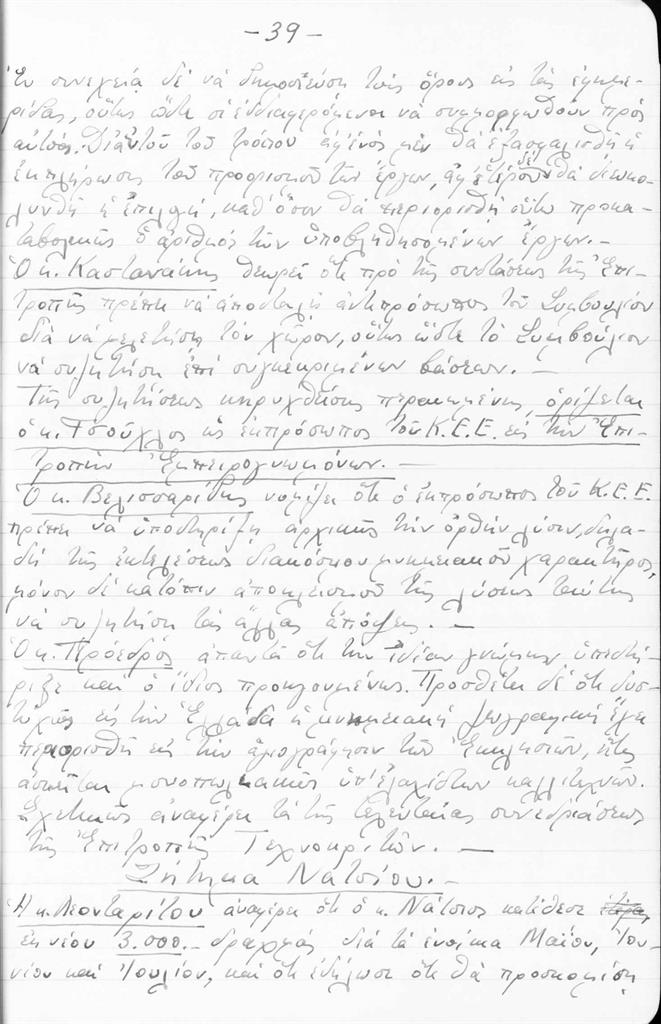 - 39 -
Ἐν συνεχείᾳ δέ νά δημοσιεύσῃ τούς ὅρους εἰς τάς ἐφημε-
ρίδας, οὕτως ὥστε οἱ ἐνδιαφερόμενοι νά συμμορφωθοῦν πρός
αὐτούς. Διά τοῦ τρόπου ἀφ' ἑνός μέν θά ἐξασφαλισθῇ ἡ
ἐκπλήρωσις τοῦ προορισμοῦ τῶν ἔργων, ἀφ' ἑτέρου δέ θά διευκο-
λυνθῇ ἡ ἐπιλογή, καθ' ὅσον θά περιορισθῇ οὕτω προκα-
ταβολικῶς ὁ ἀριθμός τῶν ὑποβληθησομένων ἔργων.-
Ὁ κ. Καστανάκης θεωρεῖ ὅτι πρό τῆς συστάσεως τῆς Ἐπι-
τροπῆς πρέπει νά ἀποσταλῇ ἀντιπρόσωπος τοῦ Συμβουλίου
διά νά μελετήσῃ τόν χῶρον, οὕτως ὥστε τό Συμβούλιον
νά συζητήσῃ ἐπί συγκεκριμένων βάσεων. -
Τῆς συζητήσεως κηρυχθείσης περαιωμένης, ὁρίζεται
ὁ κ. Τσούχλος ὡς ἐκπρόσωπος τοῦ Κ.Ε.Ε. εἰς τήν Ἐπι-
τροπήν Ἐμπειρογνωμόνων. -
Ὁ κ. Βελισσαρίδης νομίζει ὅτι ὁ ἐκπρόσωπος τοῦ Κ.Ε.Ε.
πρέπει νά ὑποστηρίξῃ ἀρχικῶς τήν ὀρθήν λύσιν, δηλα-
δή τῆς ἐκτελέσεως διακόσμου μνημειακοῦ χαρακτῆρος,
μόνον δέ κατόπιν ἀποκλεισμοῦ τῆς λύσεως ταύτης
νά συζητήσῃ τάς ἄλλας ἀπόψεις. -
Ὁ κ. Πρόεδρος ἀπαντᾶ ὅτι τήν ἰδίαν γνώμην ὑπεστή-
ριξε καί ὁ ἴδιος προηγουμένως. Προσθέτει δέ ὅτι δυσ-
τυχῶς εἰς τήν Ἑλλάδα ἡ μνημειακή ζωγραφική ἔχει
περιορισθῆ εἰς τήν ἁγιογράφησιν τῶν Ἐκκλησιῶν, ἥτις
ἀσκεῖται μονοπωλιακῶς ὑπ' ἐλαχίστων καλλιτεχνῶν.
Σχετικῶς ἀναφέρει τά τῆς τελευταίας συνεδριάσεως
τῆς Ἐπιτροπῆς Τεχνοκριτῶν. -
Ζήτημα Νάτσιου.-
Ἡ κ. Λεονταρίτου ἀναφέρει ὅτι ὁ κ. Νάτσιος κατέθεσε
ἐκ νέου 3.000.- δραχμάς διά τά ἐνοίκια Μαΐου, Ἰου-
νίου καί Ἰουλίου, καί ὅτι ἐδήλωσε ὅτι θά προσκομίσῃ